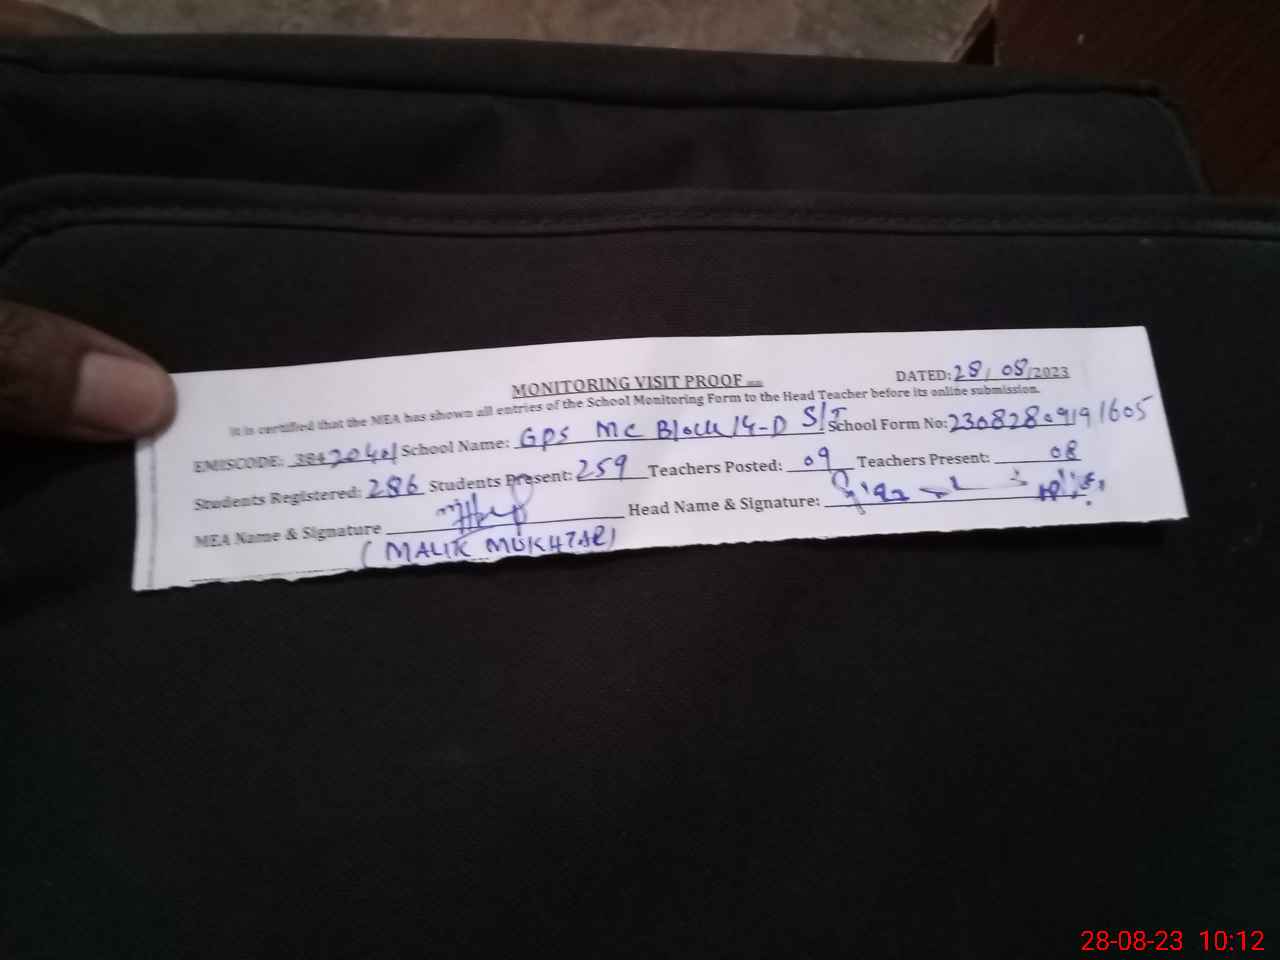 MONITORING VISIT PROOF
DATED: 28/ 08/2023
It is certified that the MEA has shown all entries of the School Monitoring Form to the Head Teacher before its online submission.
EMISCODE: School Name: GPS MC Block 14-D S/T School Form No: 23082809191605
Students Registered: 286 Students Present: 259 Teachers Posted: 09 Teachers Present: 08
MEA Name & Signature Head Name & Signature:
(MALIK MUKHTAR)
28-08-23 10:12